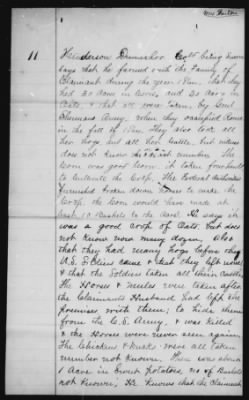 Mrs Fulton
11
Henderson Dunnahoo Col being sworn
says that he farmed with the Family of
Claimant during the year 1864, that they
had 30 Acres in Corn, and 20 Acres in
Oats, & that all were taken by Genl
Shermans Army, when they occupied Rome
in the fall of 1864. They also took all
her hogs and all her Cattle, but witness
does not know the exact number. The
Corn was good Corn. It taken four mules
to cultivate the Crop. The Federal Authorities
furnished broken down horses to make the
Crop. The Corn would have made at
least 10 Bushels to the acre. He says it
was a good crop of Oats but does
not know how many dozen. Also
that they had many hogs before the
U.S. Soldiers came & that they left none
& that the Soldiers taken all their Cattle
The Horses & Mules were taken after
the Claimants Husband had left the
premises with them; to hide them
from the C.S. Army, & was killed
& the Horses were never seen again.
The Chickens & Ducks were all taken
number not known. There was about
1 Acre in Sweet potatoes, no of Bushels
not known, He Knows that the Claimant